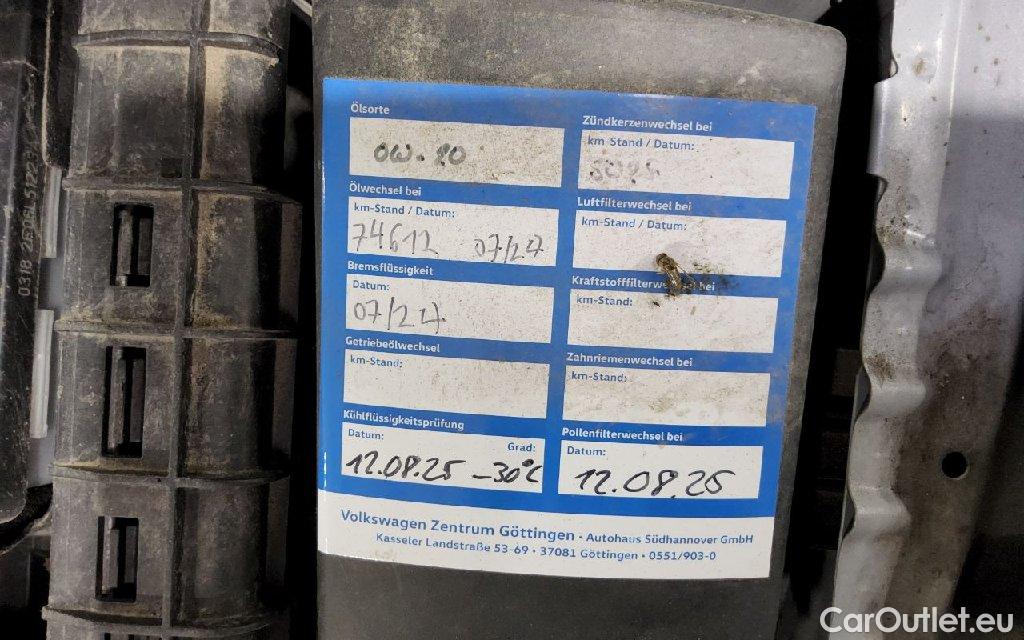 Ölsorte
0W-20
Ölwechsel bei
km-Stand / Datum:
74612 07/24
Bremsflüssigkeit
Datum:
07/24
Getriebeölwechsel
km-Stand:
Kühlflüssigkeitsprüfung
Datum: Grad:
12.08.25 -30°C
Zündkerzenwechsel bei
km-Stand / Datum:
Luftfilterwechsel bei
km-Stand / Datum:
Kraftstofffilterwechsel bei
km-Stand:
Zahnriemenwechsel bei
km-Stand:
Pollenfilterwechsel bei
Datum:
12.08.25
Volkswagen Zentrum Göttingen - Autohaus Südhannover GmbH
Kasseler Landstraße 53-69 • 37081 Göttingen • 0551/903-0
CarOutlet.eu